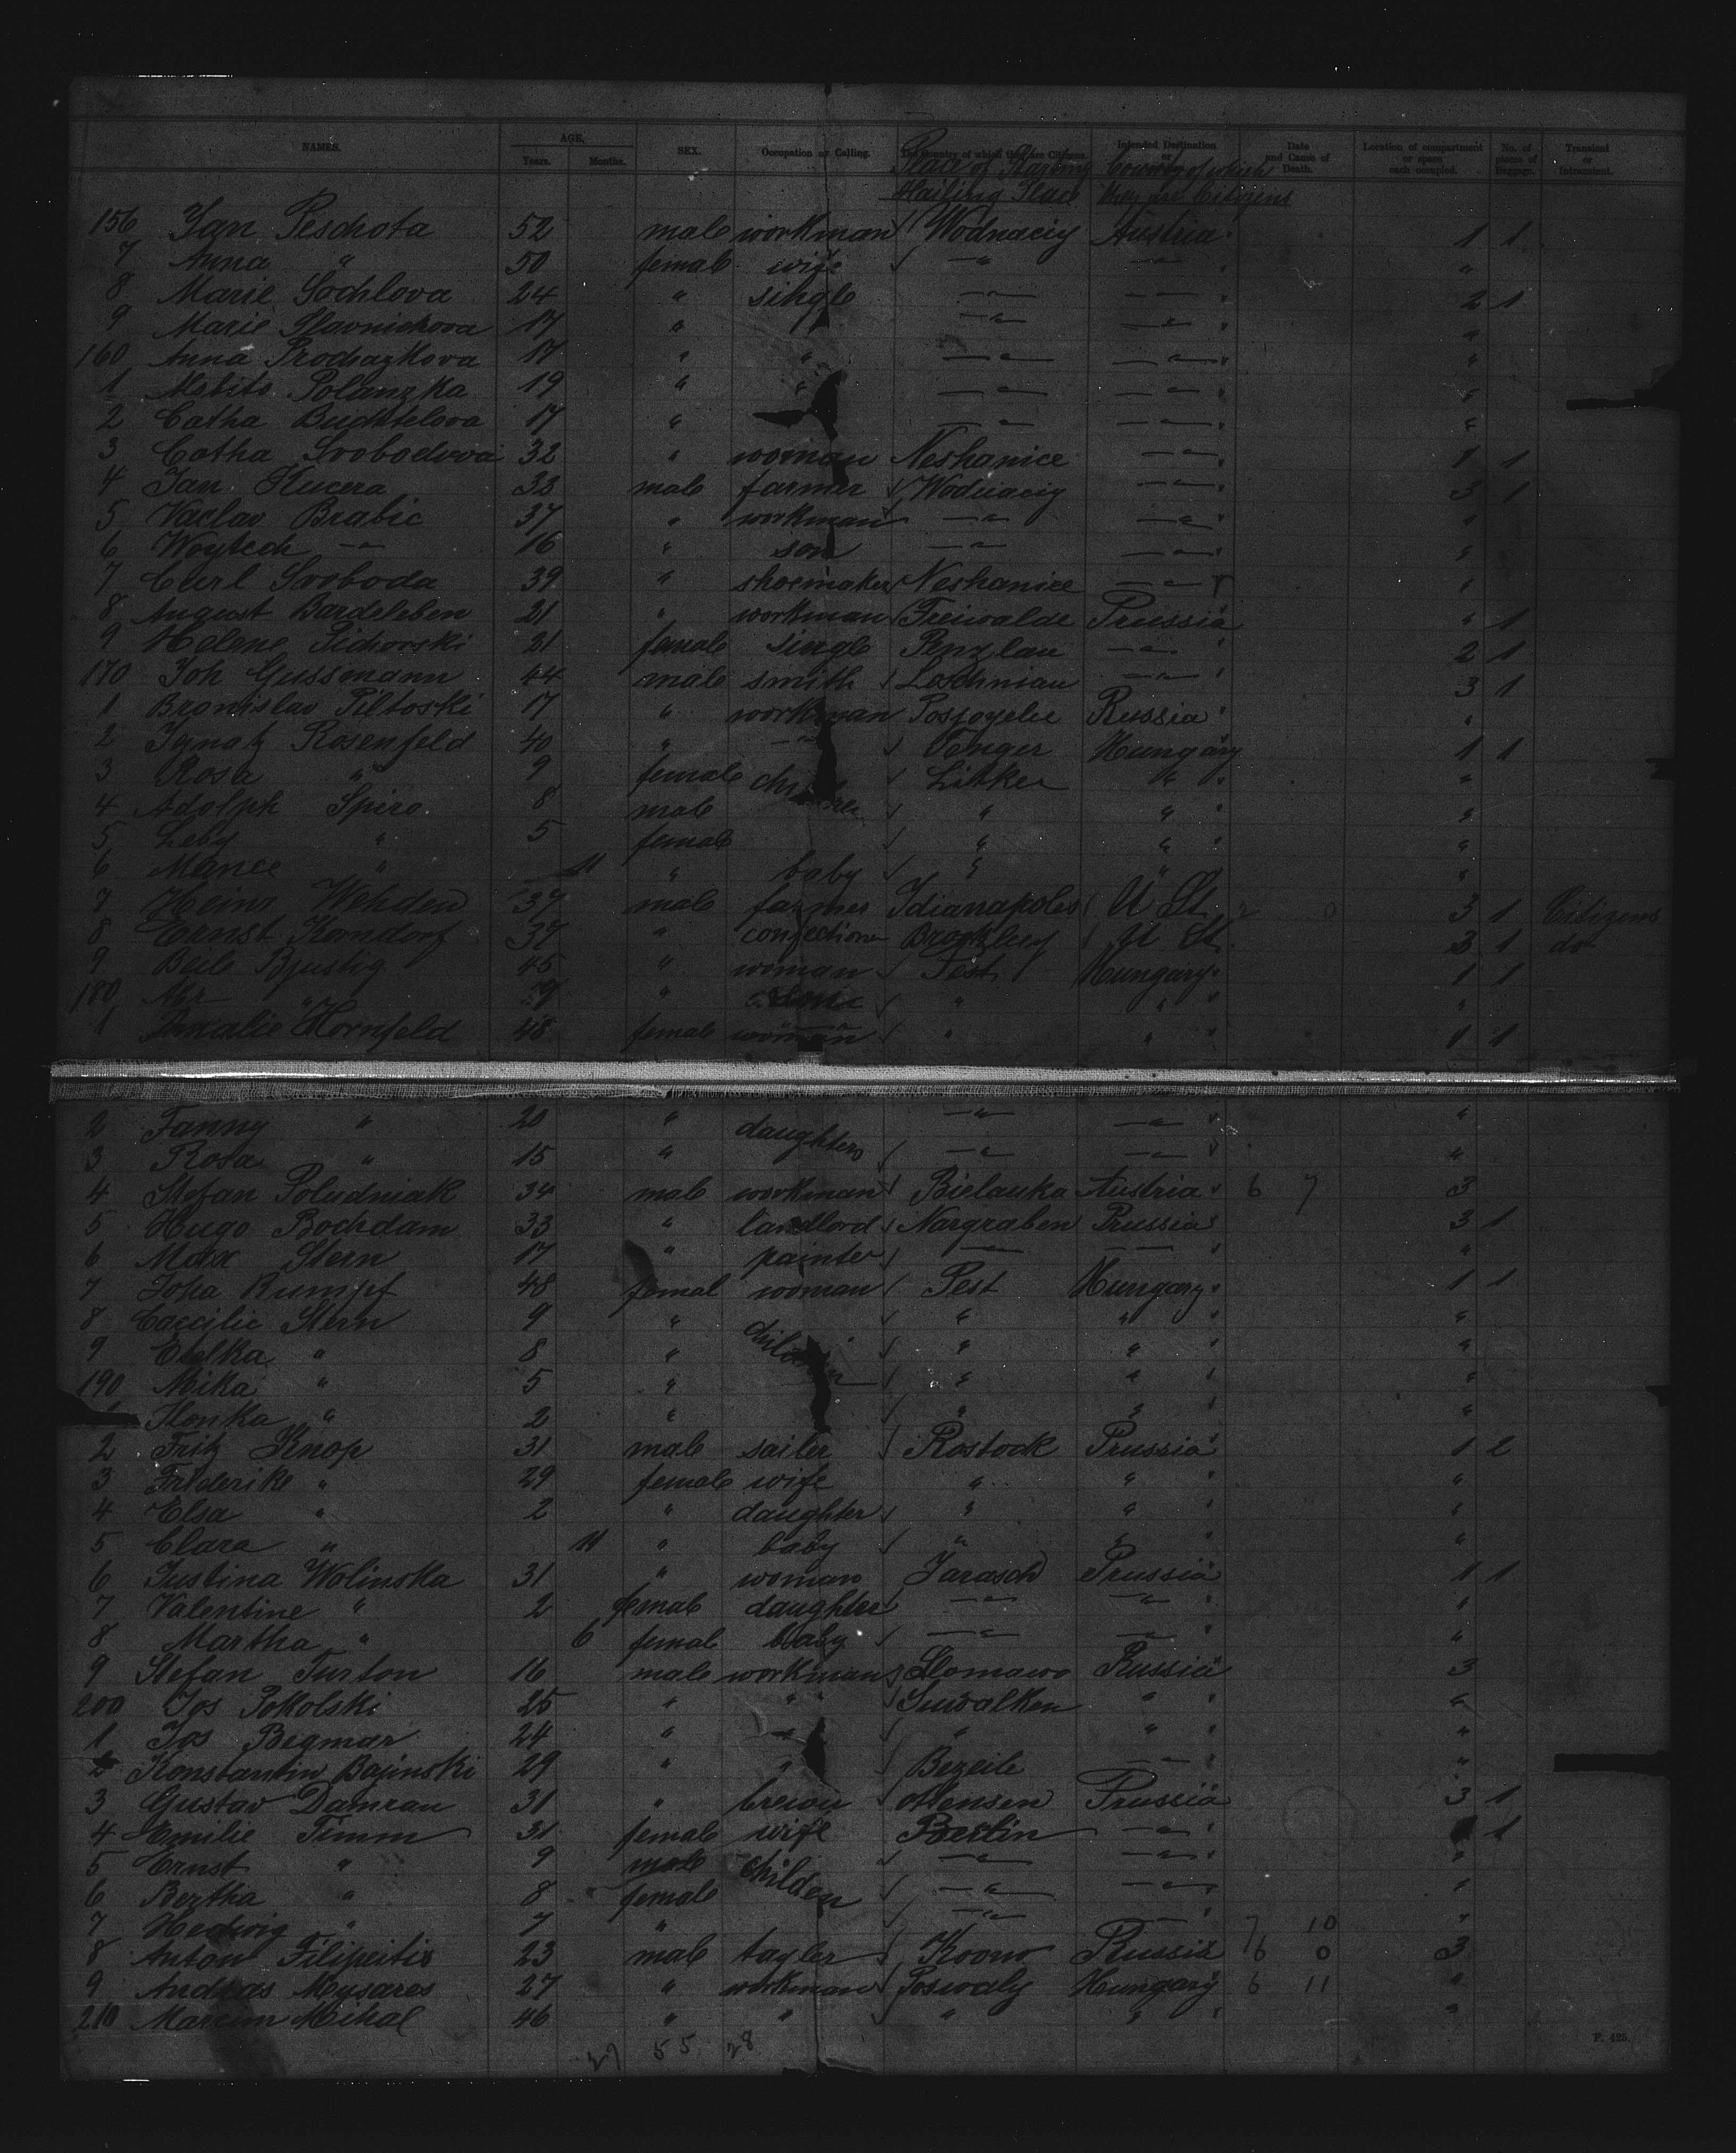 NAMES. AGE. SEX. Occupation or Calling. The Country of which they are Citizens. Intended Destination or Date and Cause of Death. Location of compartment or space each occupied. No. of pieces of Baggage. Transient or Intransient.
Years. Months. Place of Starting Country of which
Hailing Place they are Citizens
156 Jan Peschota 52 male workman Wodnaciy Austria 1 1
7 Anna " 50 female wife " " "
8 Marie Sochlova 24 " single " " 2 1
9 Marie Slavnickova 17 " " " "
160 Anna Prochazkova 17 " " " " "
1 Polanzka 19 " " " " "
2 Catha Buchtelova 17 " " " "
3 Catha Svobodova 32 " woman Neshanice " 1 1
4 Jan Kucera 33 male farmer Wodnaciy " 3 1
5 Vaclav Brabic 37 " workman " " "
6 Woytech " 16 " son " " "
7 Carl Svoboda 39 " shoemaker Neshanice " "
8 August Bardeleben 21 " workman Freiwalde Prussia " 1
9 Helene Sichorski 21 female single Penzlau " 2 1
170 Joh Gussmann 44 male smith Loschniau " 3 1
1 Bronislav Piltoski 17 " workman Russia "
2 Ignatz Rosenfeld 40 " " Unger Hungary 1 1
3 Rosa " 9 female children Litker " "
4 Adolph Spiro 8 male " " "
5 Leby " 5 female " " "
6 " 11 " baby " " "
7 Heinr Wehden 37 male farmer Idianapoles U St 3 1 Citizens
8 Ernst Korndorf 37 " confectioner U St 3 1 do
9 Beile 45 " woman Pest Hungary 1 1
180 " " " " "
1 Hornfeld 48 female woman " " 1 1
2 Fanny " 20 " daughters " " "
3 Rosa " 15 " " " "
4 Stefan Poludniak 34 male workman Bielauka Austria 6 7 3
5 Hugo Bochdam 33 " landlord Nargraben Prussia 3 1
6 Max Stern 17 " painter " " "
7 Joha Rumpf 48 femal woman Pest Hungary 1 1
8 Caecilie Stern 9 " children " " "
9 Etelka " 8 " " " "
190 Mika " 5 " " " "
1 Ilonka " 2 " " " "
2 Fritz Knop 31 male sailer Rostock Prussia 1 2
3 Friderike " 29 female wife " " "
4 Elsa " 2 " daughter " " "
5 Clara " 11 " baby " " "
6 Justina Wolinska 31 " woman Jarasch Prussia 1 1
7 Valentine " 2 female daughter " " "
8 Martha " 6 female baby " " "
9 Stefan Turton 16 male workman Slomawo Russia 3
200 Jos Sokolski 25 " " Suwalken " "
1 Jos Begmar 24 " " " " "
2 Konstantin Bajinski 29 " " Bezeile " "
3 Gustav Damrau 31 " brewer Ottensen Prussia 3 1
4 Emilie Timm 31 female wife Berlin " 1
5 Ernst " 9 male children " " "
6 Bertha " 8 female " " "
7 Hedwig " 7 " " " 7 10 "
8 Anton Filipeitis 23 male tayler Koono Russia 6 0 3
9 Andreas Mysares 27 " workman Poswaly Hungary 6 11 "
210 Mihal 46 " " " " "
27 55 28
P. 425